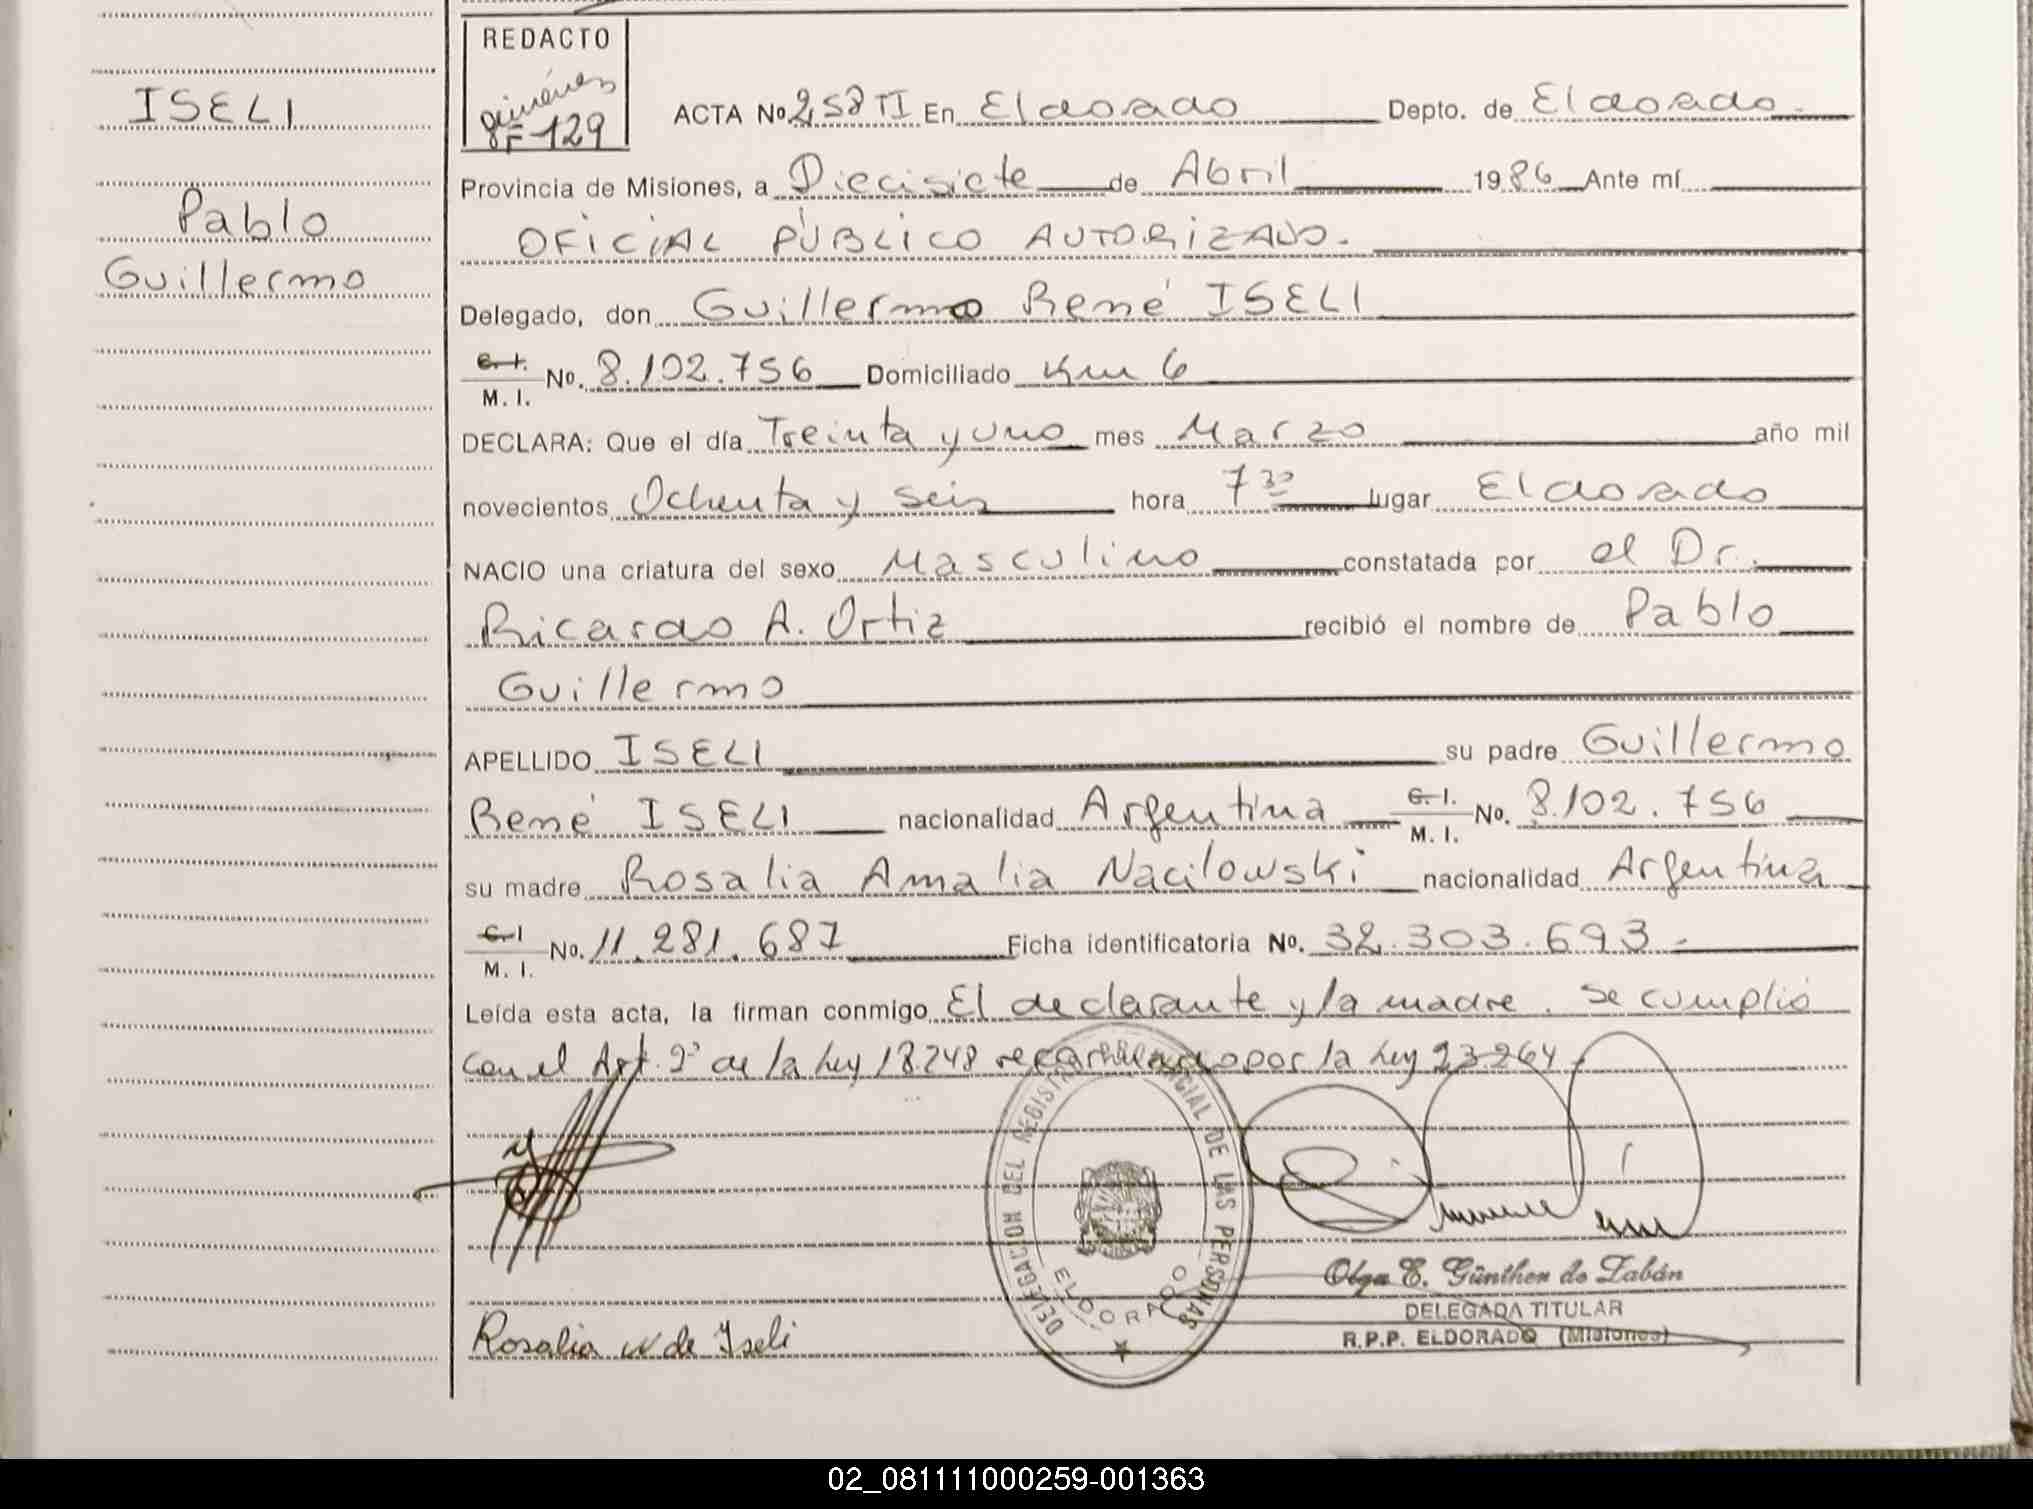 ISELI
Pablo
Guillermo
REDACTO
Giménez
F 129
ACTA No 258 TI En Eldorado Depto. de Eldorado.
Provincia de Misiones, a Diecisiete de Abril 1986 Ante mí
OFICIAL PÚBLICO AUTORIZADO.
Delegado, don Guillermo René ISELI
C. I. / M. I. No. 8.102.756 Domiciliado Km 6
DECLARA: Que el día Treinta y uno mes Marzo año mil
novecientos Ochenta y seis hora 7 30 lugar Eldorado
NACIO una criatura del sexo Masculino constatada por el Dr.
Ricardo A. Ortiz recibió el nombre de Pablo
Guillermo
APELLIDO ISELI su padre Guillermo
René ISELI nacionalidad Argentina C. I. / M. I. No. 8.102.756
su madre Rosalia Amalia Nacilowski nacionalidad Argentina
C. I / M. I. No. 11.281.687 Ficha identificatoria No. 32.303.693.-
Leída esta acta, la firman conmigo El declarante y la madre. Se cumplió
con el Art. 2º de la Ley 18248 por la Ley 23.264.
DELEGACION DEL REGISTRO PROVINCIAL DE LAS PERSONAS
ELDORADO
Olga E. Günther de Zabán
DELEGADA TITULAR
R.P.P. ELDORADO (Misiones)
Rosalia N de Iseli
02_081111000259-001363